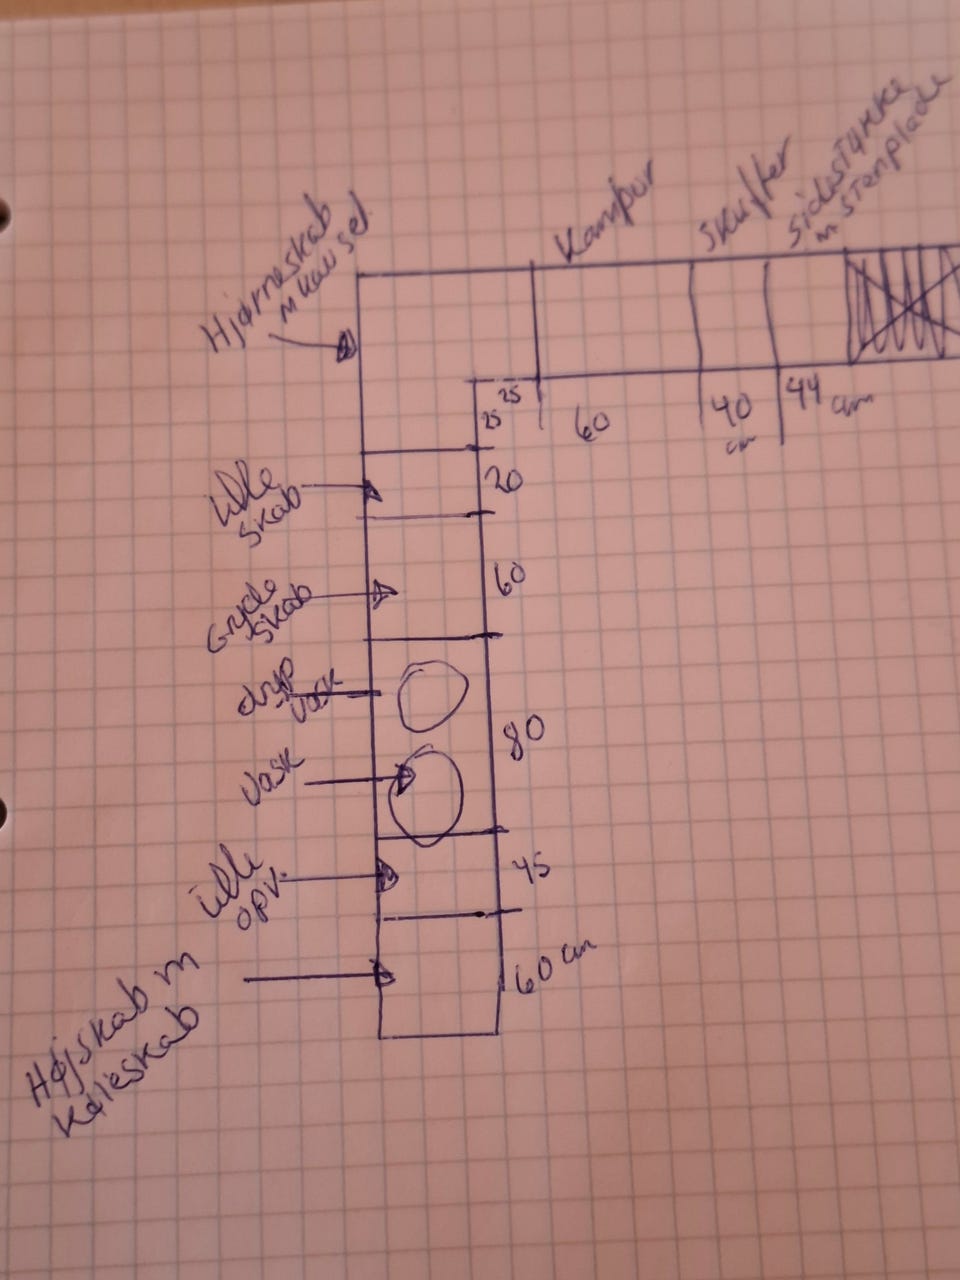 Hjørneskab
m karusel
Kombiovn
Skuffer
sidestykke
m stenplade
25
25
60
40
cm
44 cm
Lille
skab
20
Gryde
skab
60
dryp
vask
Vask
80
Lille
opv.
45
Højskab m
køleskab
60 cm